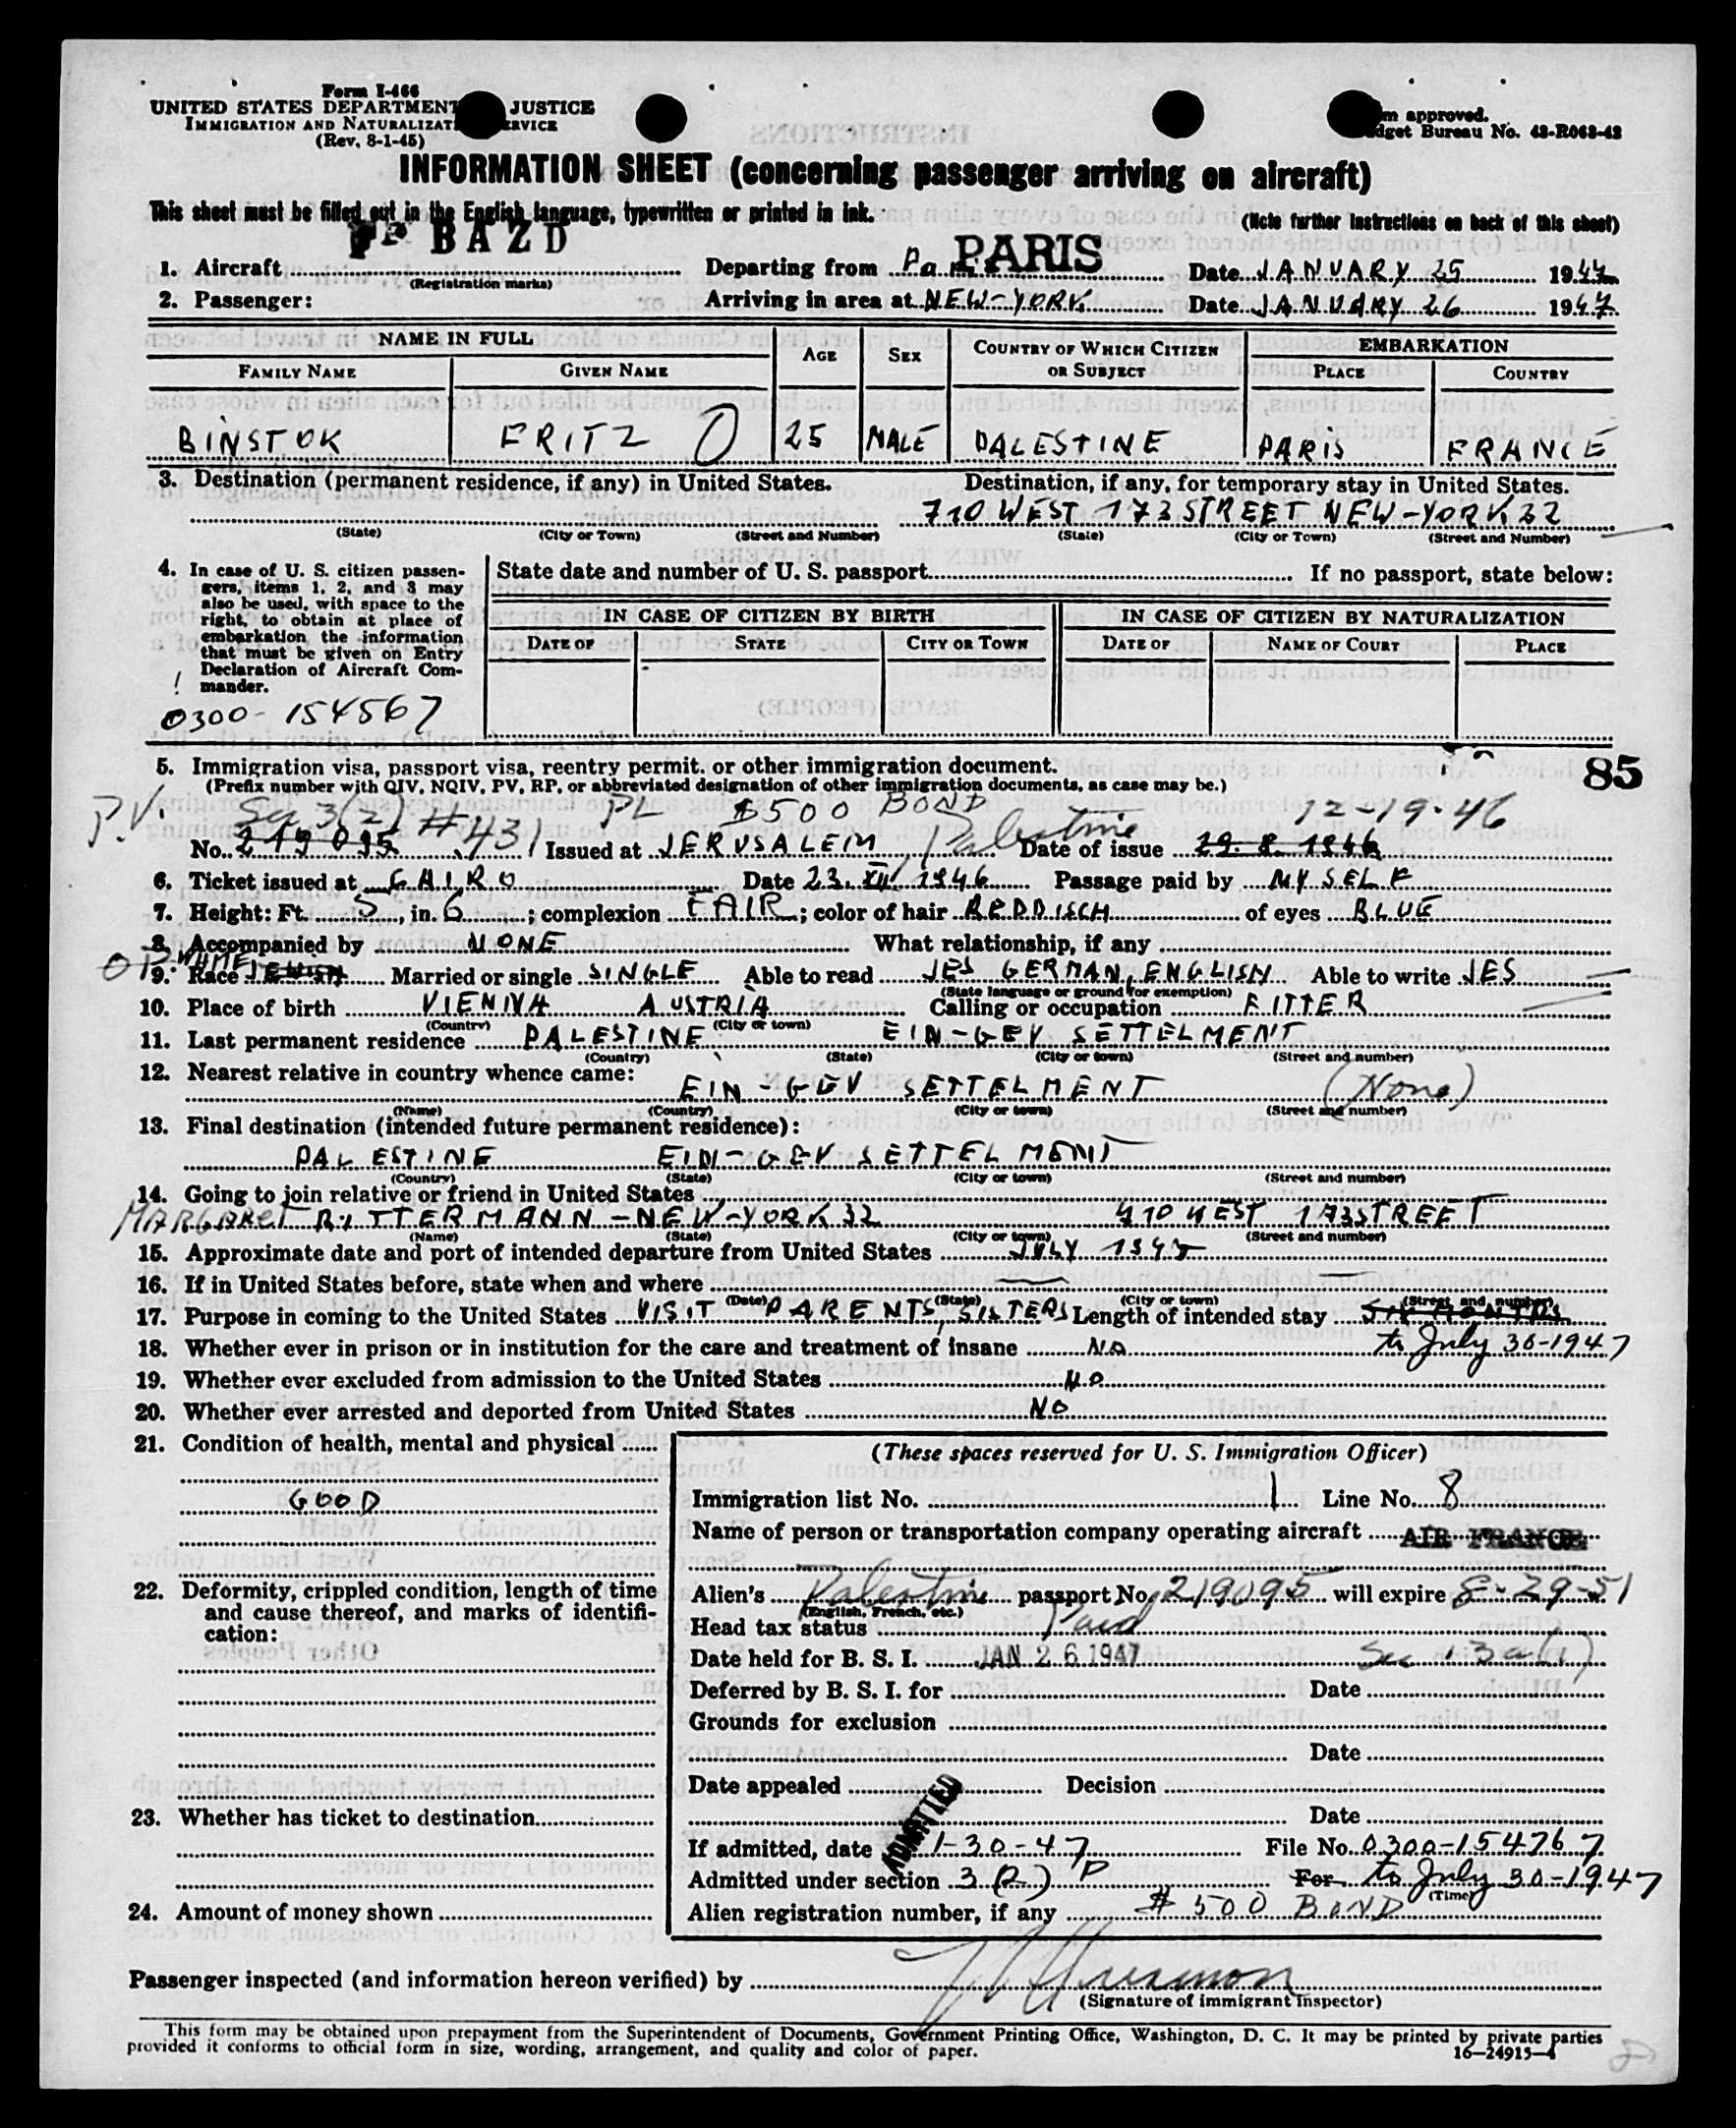 Form I-466
UNITED STATES DEPARTMENT JUSTICE
IMMIGRATION AND NATURALIZAT ERVICE
(Rev. 8-1-45)
m approved.
dget Bureau No. 43-R063-42
INFORMATION SHEET (concerning passenger arriving on aircraft)
This sheet must be filled out in the English language, typewritten or printed in ink.
(Note further instructions on back of this sheet)
1. Aircraft BAZD Departing from Paris PARIS Date JANUARY 25 1947
(Registration marks)
2. Passenger: Arriving in area at NEW-YORK Date JANUARY 26 1947
NAME IN FULL AGE SEX COUNTRY OF WHICH CITIZEN OR SUBJECT EMBARKATION
FAMILY NAME GIVEN NAME PLACE COUNTRY
BINSTOK FRITZ 0 25 MALE PALESTINE PARIS FRANCE
3. Destination (permanent residence, if any) in United States. Destination, if any, for temporary stay in United States.
710 WEST 173 STREET NEW-YORK 32
(State) (City or Town) (Street and Number) (State) (City or Town) (Street and Number)
4. In case of U. S. citizen passengers, items 1, 2, and 3 may also be used, with space to the right, to obtain at place of embarkation the information that must be given on Entry Declaration of Aircraft Commander.
State date and number of U. S. passport If no passport, state below:
IN CASE OF CITIZEN BY BIRTH IN CASE OF CITIZEN BY NATURALIZATION
DATE OF STATE CITY OR TOWN DATE OF NAME OF COURT PLACE
0300-154567
5. Immigration visa, passport visa, reentry permit, or other immigration document. 85
(Prefix number with QIV, NQIV, PV, RP, or abbreviated designation of other immigration documents, as case may be.)
P.V. Sec 3(2) #431 PL $500 BOND 12-19-46
No. 219095 Issued at JERUSALEM, Palestine Date of issue 29. 8. 1946
6. Ticket issued at CAIRO Date 23. XII 1946 Passage paid by MYSELF
7. Height: Ft. 5, in. 6; complexion FAIR; color of hair REDDISCH of eyes BLUE
8. Accompanied by NONE What relationship, if any
WHITE
9. Race JEWISH Married or single SINGLE Able to read JES GERMAN, ENGLISH Able to write JES
(State language or ground for exemption)
10. Place of birth VIENNA AUSTRIA Calling or occupation FITTER
(Country) (City or town)
11. Last permanent residence PALESTINE EIN-GEV SETTELMENT
(Country) (State) (City or town) (Street and number)
12. Nearest relative in country whence came: EIN-GEV SETTELMENT (None)
(Name) (Country) (City or town) (Street and number)
13. Final destination (intended future permanent residence):
PALESTINE EIN-GEV SETTELMENT
(Country) (State) (City or town) (Street and number)
14. Going to join relative or friend in United States
MARGARET RITTERMANN - NEW-YORK 32 710 WEST 173 STREET
(Name) (State) (City or town) (Street and number)
15. Approximate date and port of intended departure from United States JULY 1947
16. If in United States before, state when and where
(Date) (State) (City or town) (Street and number)
17. Purpose in coming to the United States VISIT PARENTS, SISTERS Length of intended stay SIX MONTHS
18. Whether ever in prison or in institution for the care and treatment of insane NO to July 30-1947
19. Whether ever excluded from admission to the United States NO
20. Whether ever arrested and deported from United States NO
21. Condition of health, mental and physical
GOOD
(These spaces reserved for U. S. Immigration Officer)
Immigration list No. 1 Line No. 8
Name of person or transportation company operating aircraft AIR FRANCE
22. Deformity, crippled condition, length of time and cause thereof, and marks of identification:
Alien's Palestine passport No. 219095 will expire 8-29-51
(English, French, etc.)
Head tax status Paid
Date held for B. S. I. JAN 26 1947 Sec 13a(1)
Deferred by B. S. I. for Date
Grounds for exclusion
Date
Date appealed Decision
23. Whether has ticket to destination
Date
ADMITTED
If admitted, date 1-30-47 File No. 0300-154767
Admitted under section 3(2) P For to July 30-1947
(Time)
24. Amount of money shown
Alien registration number, if any $500 BOND
Passenger inspected (and information hereon verified) by
(Signature of immigrant inspector)
This form may be obtained upon prepayment from the Superintendent of Documents, Government Printing Office, Washington, D. C. It may be printed by private parties
provided it conforms to official form in size, wording, arrangement, and quality and color of paper.
16—24915-4